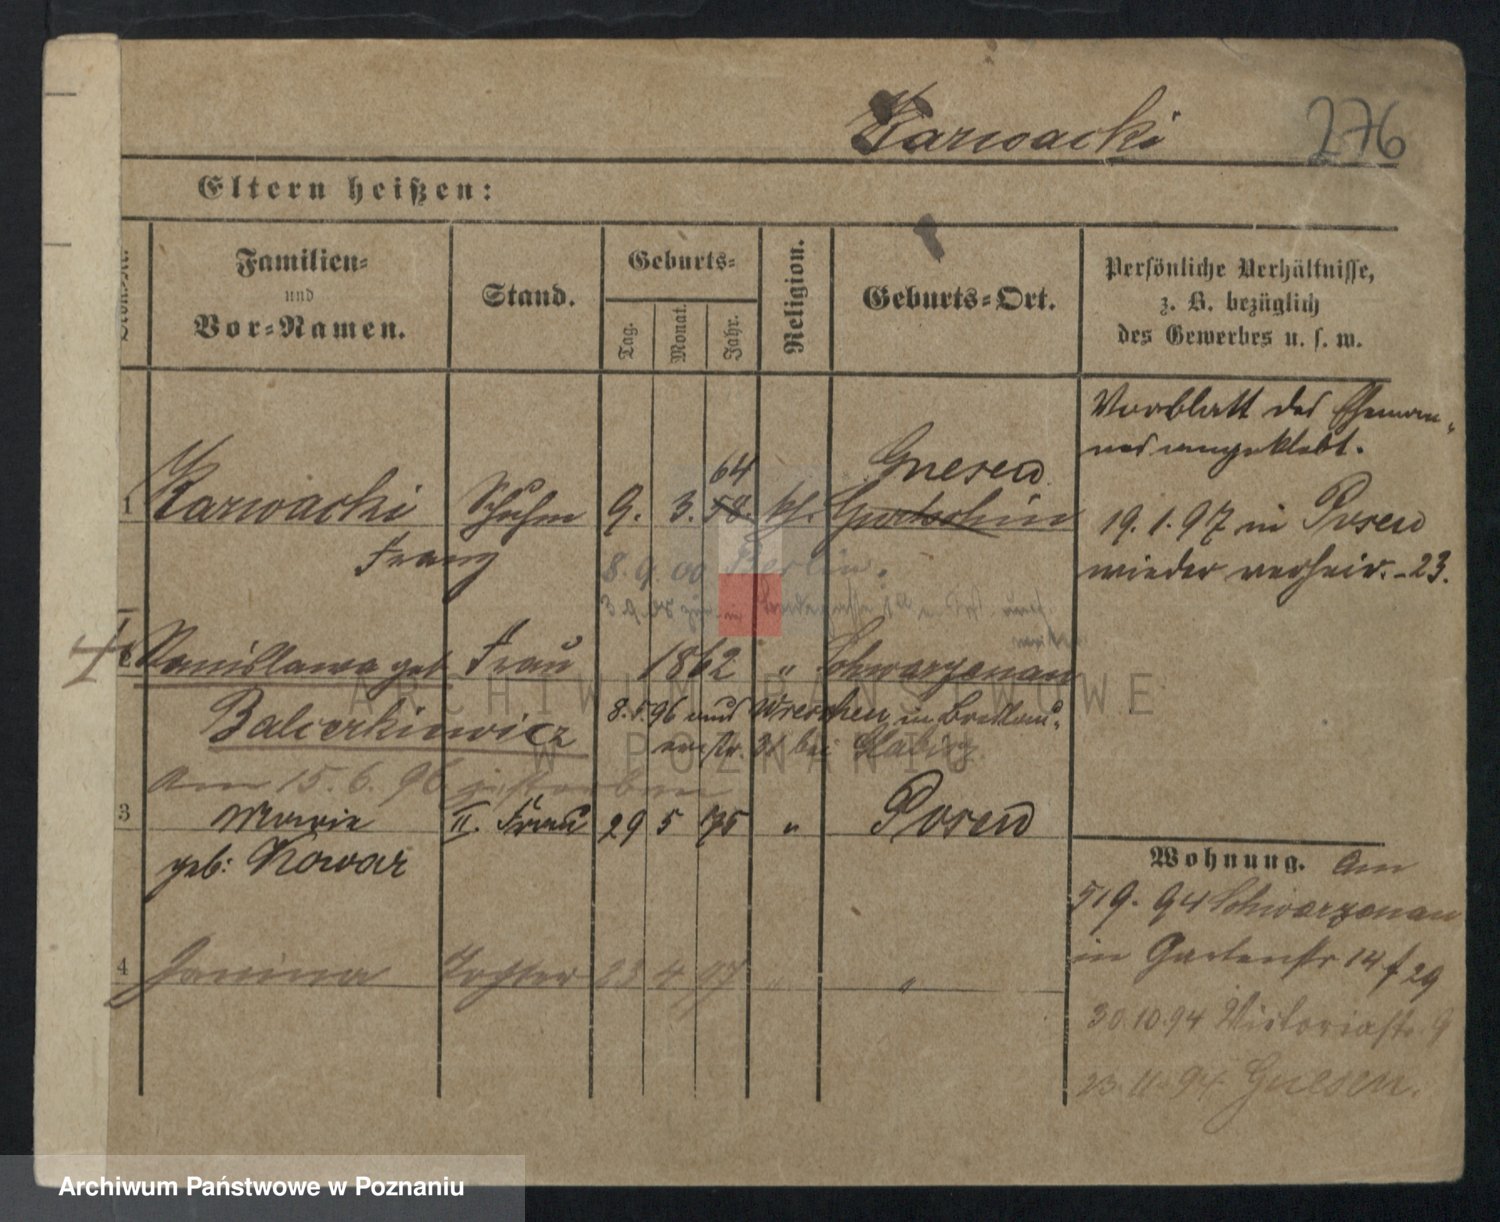 Karwacki
276
Eltern heißen:
Familien-
und
Vor-Namen.
Stand.
Geburts-
Tag.
Monat.
Jahr.
Religion.
Geburts-Ort.
Persönliche Verhältnisse,
z. B. bezüglich
des Gewerbes u. s. w.
Vorblatt des Eheman-
nes angeklebt.
64
Gnesen
1 Karwacki Schuhm 9. 3. 58. kh.
Franz
19.1.97 in Posen
wieder verheir. -23.
8.9.00 Berlin.
2 Stanislawa geb Frau 1862 " Schwarzenau
Balcerkiewicz
8.5.96 aus Wreschen in Breslauer-
str. bei
am 15.6.96 gestorben
3 Marie II. Frau 29 5 75 " Posen
geb: Nowak
Wohnung. Am
5/9. 94 Schwarzenau
in Gartenstr 14 f 29
4 Janina Tochter 23 4 97 " "
30.10.94 Victoriastr. 9
23.11.94. Gnesen.
ARCHIWUM PAŃSTWOWE
W POZNANIU
Archiwum Państwowe w Poznaniu